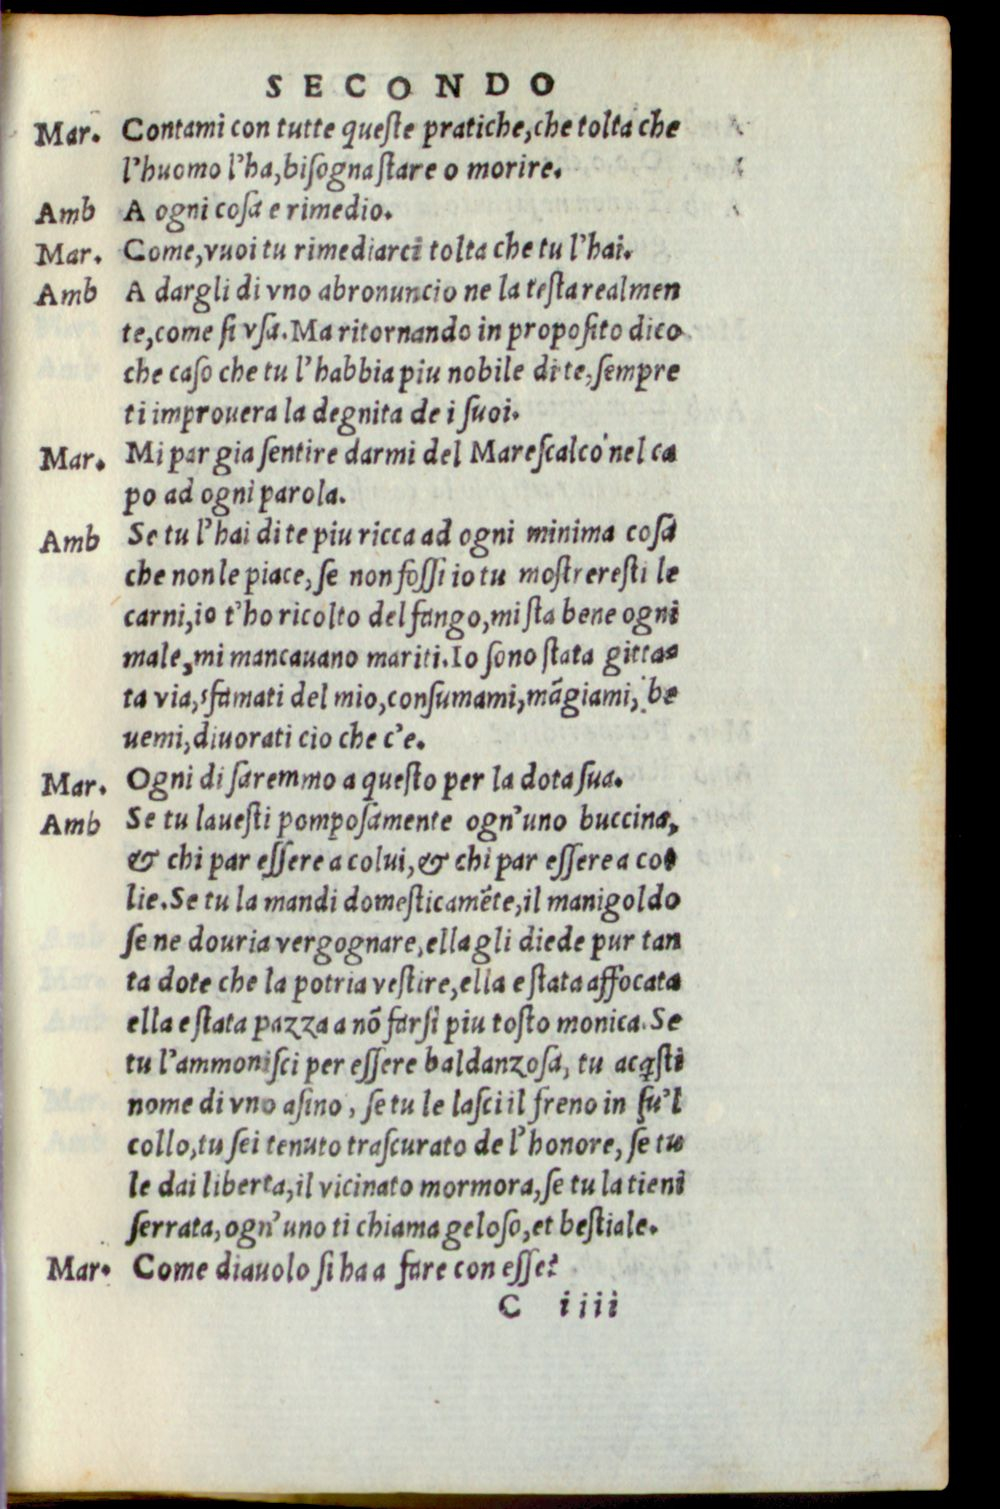 SECONDO
Mar. Contami con tutte queste pratiche, che tolta che
l'huomo l'ha, bisogna stare o morire.
Amb A ogni cosa e rimedio.
Mar. Come, vuoi tu rimediarci tolta che tu l'hai.
Amb A dargli di vno abronuncio ne la testa realmen
te, come si vsa. Ma ritornando in proposito dico
che caso che tu l'habbia piu nobile di te, sempre
ti improuera la degnita de i suoi.
Mar. Mi par gia sentire darmi del Marescalco nel ca
po ad ogni parola.
Amb Se tu l'hai di te piu ricca ad ogni minima cosa
che non le piace, se non fossi io tu mostreresti le
carni, io t'ho ricolto del fango, mi sta bene ogni
male, mi mancauano mariti. Io sono stata gitta-
ta via, sfamati del mio, consumami, mãgiami, be
uemi, diuorati cio che c'e.
Mar. Ogni di saremmo a questo per la dota sua.
Amb Se tu la vesti pomposamente ogn'uno buccina,
& chi par essere a colui, & chi par essere a co-
lie. Se tu la mandi domesticamẽte, il manigoldo
se ne douria vergognare, ella gli diede pur tan
ta dote che la potria vestire, ella e stata affocata
ella e stata pazza a nõ farsi piu tosto monica. Se
tu l'ammonisci per essere baldanzosa, tu acq̃sti
nome di vno asino, se tu le lasci il freno in su'l
collo, tu sei tenuto trascurato de l'honore, se tu
le dai liberta, il vicinato mormora, se tu la tieni
serrata, ogn'uno ti chiama geloso, et bestiale.
Mar. Come diauolo si ha a fare con esse?
C iiii